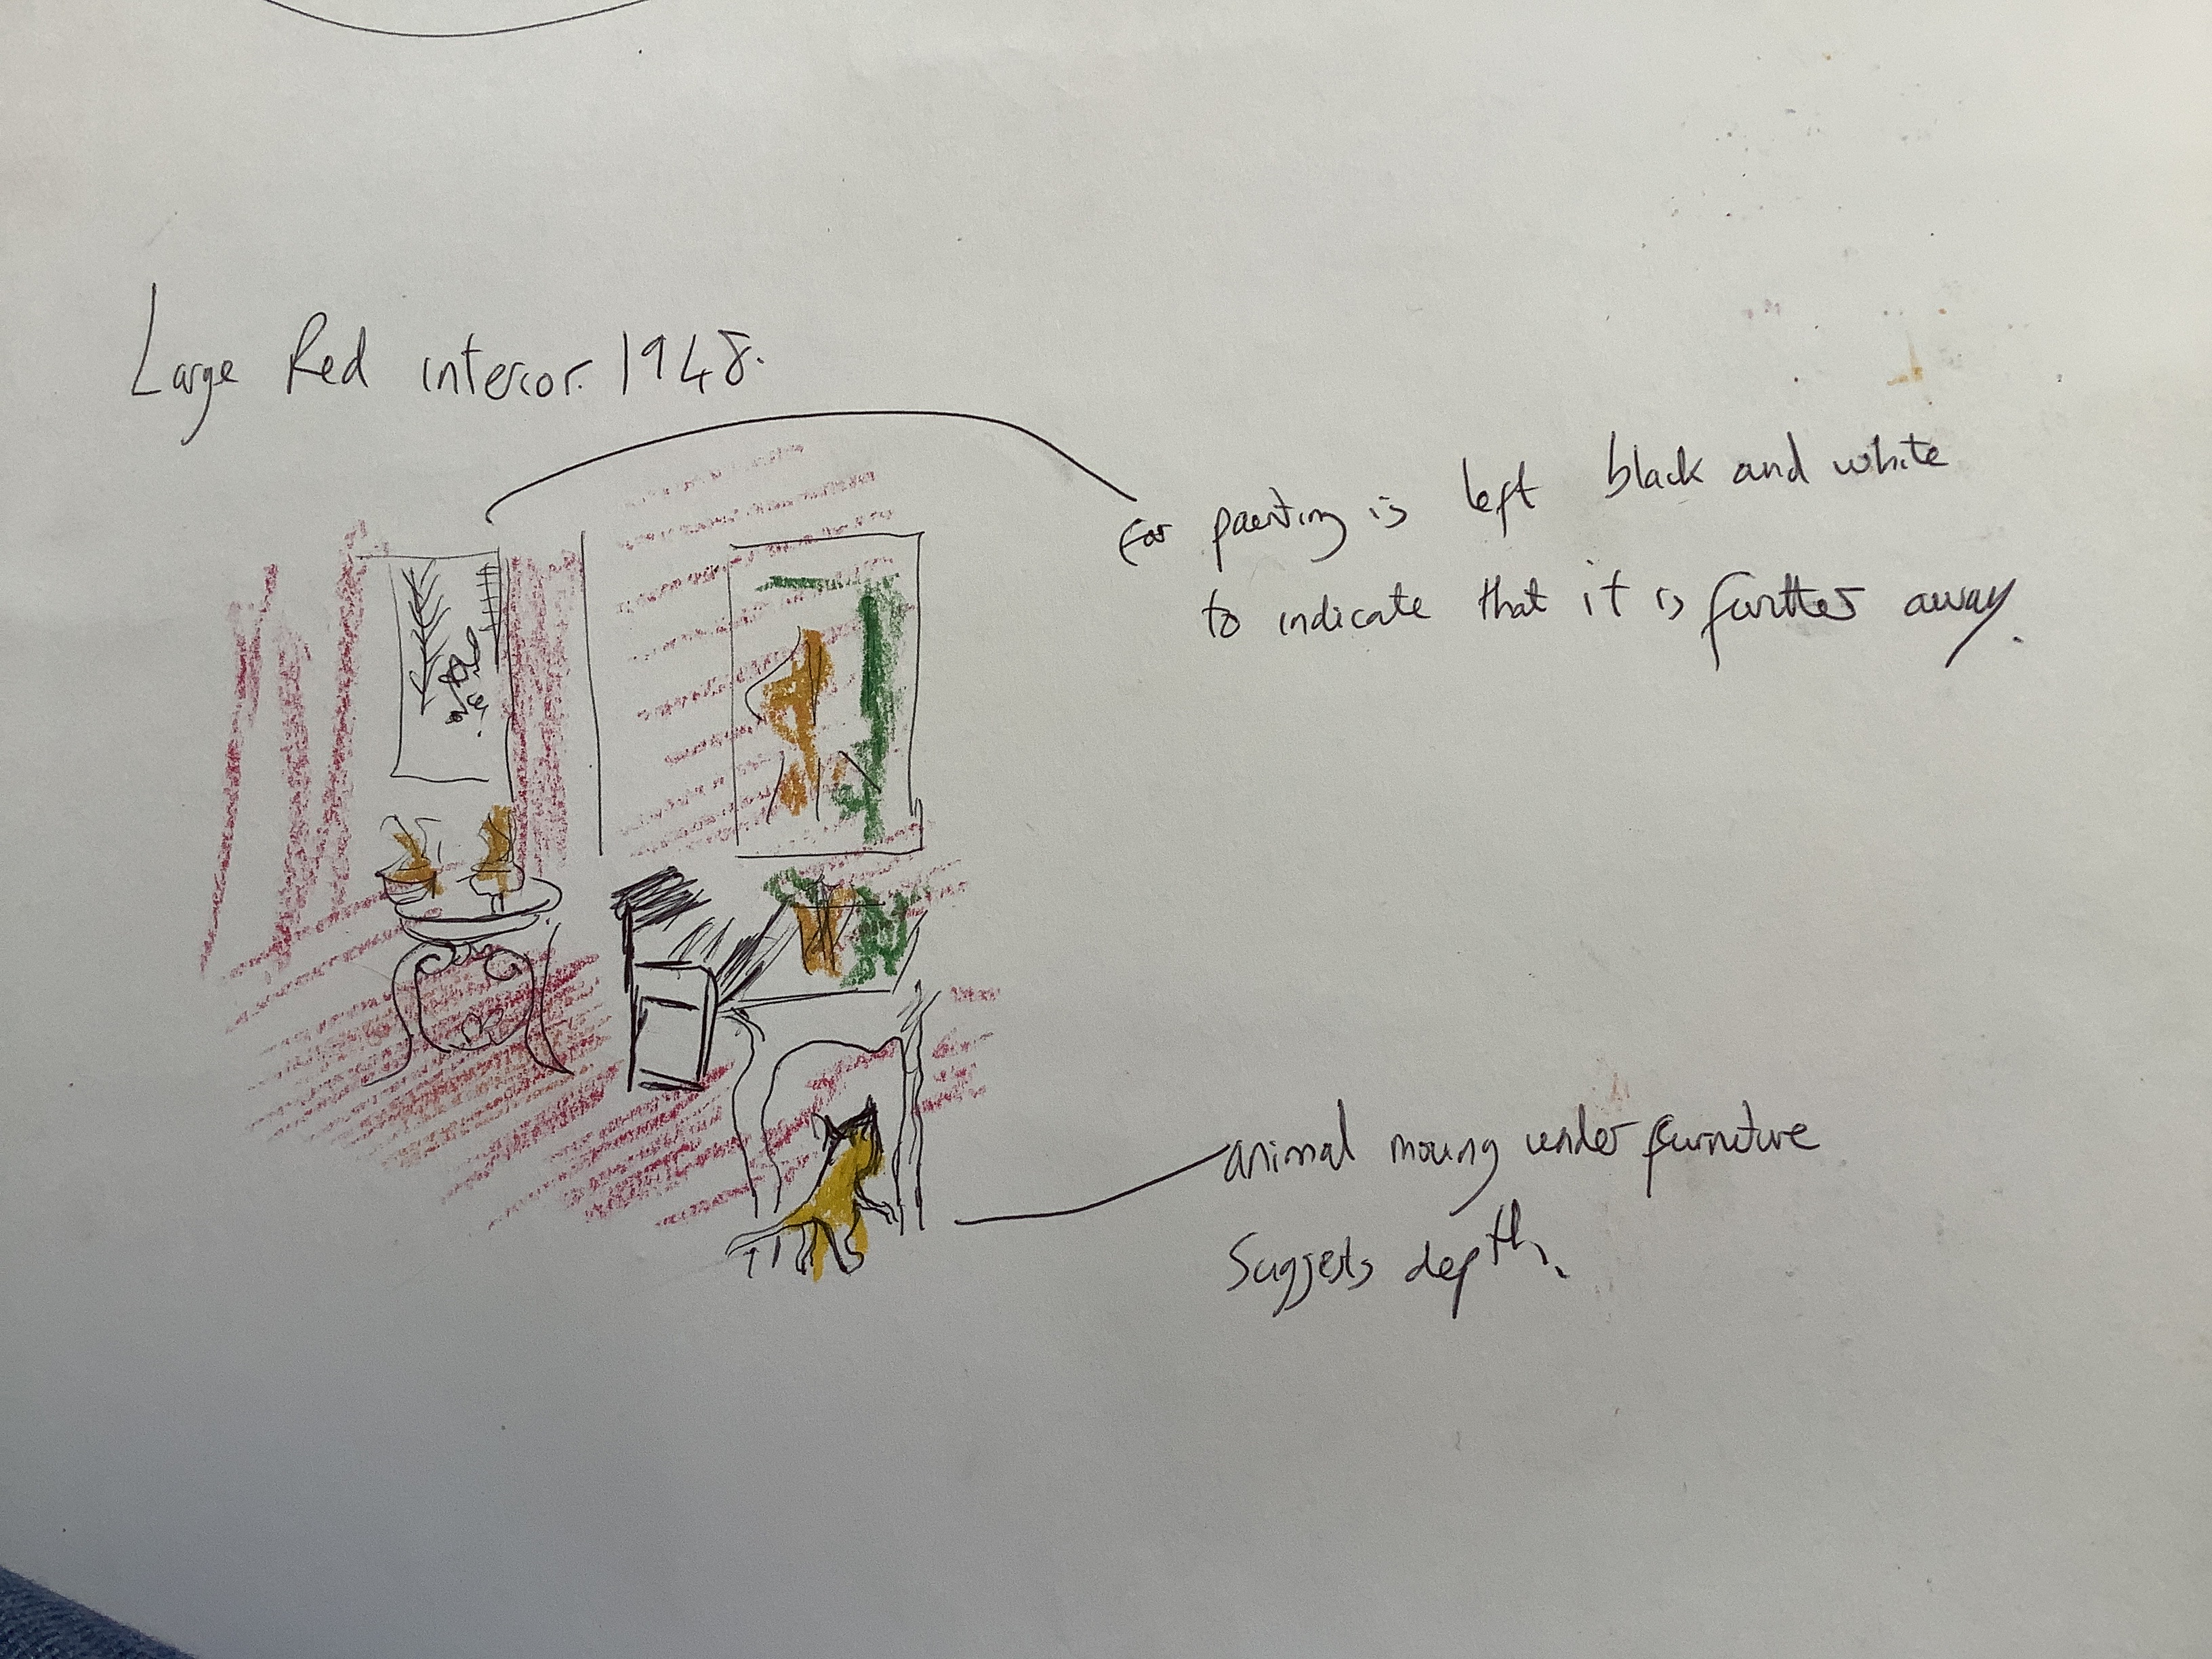 Large Red interior. 1948.
Far painting is left black and white
to indicate that it is further away.
animal moving under furniture
Suggests depth.